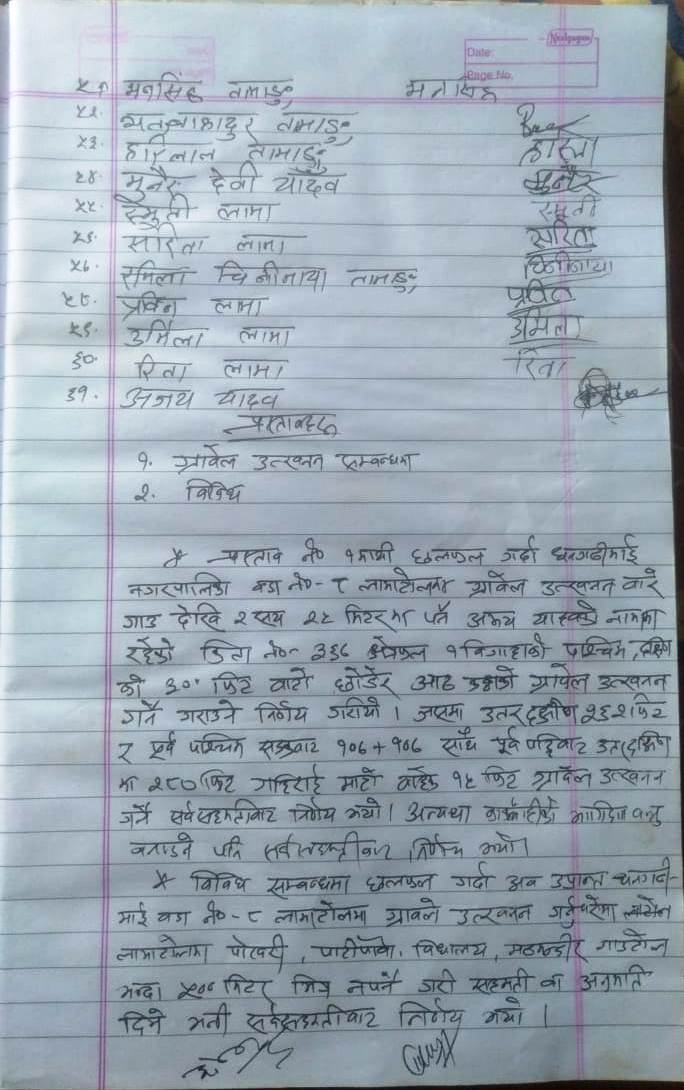 Needpapers
Date:
Page No.
५१ मनसिंह तामाङ्ग मनसिंह
५२. भक्तबहादुर तामाङ्ग
५३. हरिलाल तामाङ्ग हरिला
५४. मुनैर देवी यादव मुनैर
५५. स्मुती लामा स्मुती
५६. सरिता लामा सरिता
५७. रमिला चिनीमाया तामाङ्ग चिनीमाया
५८. प्रविन लामा प्रविन
५९. उर्मिला लामा उर्मिला
६०. रिता लामा रिता
६१. अजय यादव
प्रस्तावहरू
१. ग्रावेल उत्खनन सम्बन्धमा
२. विविध
* प्रस्ताव नं० १ माथी छलफल गर्दा धनगढीमाई
नगरपालिका वडा नं०- ८ लामाटोलमा ग्रावेल उत्खनन बारे
गाउ देखि २ सय २५ मिटरमा पर्ने यादवको नाममा
रहेको कित्ता नं०- ३३६ क्षेत्रफल १ विगाहाको पश्चिम, दक्षिण
को ३०' फिट बाटो छोडेर आठ ग्रावेल उत्खनन
गर्ने गराउने निर्णय गरियो । जसमा उत्तर दक्षीण २६२ फिट
र पूर्व पश्चिम १०६ + १०६ साथै पूर्व उत्तर दक्षिण
मा २८० फिट गहिराई माटो बाहेक १५ फिट ग्रावेल उत्खनन
गर्ने सर्वसहमतीबाट निर्णय भयो । अन्यथा कार्बाहीको भागिदार
बनाउने पनि सर्वसहमतीबाट निर्णय भयो ।
* विविध सम्बन्धमा छलफल गर्दा अब उप्रान्त धनगढी-
माई वडा नं०- ८ लामाटोलमा ग्रावेल उत्खनन गर्नुपरेमा
लामाटोलमा पोखरी, पाटीपौवा, विधालय, मठमन्दीर गाउटोल
भन्दा ५०० मिटर भित्र नपर्ने गरी सहमती वा अनुमति
दिने भनी सर्वसहमतीबाट निर्णय भयो ।